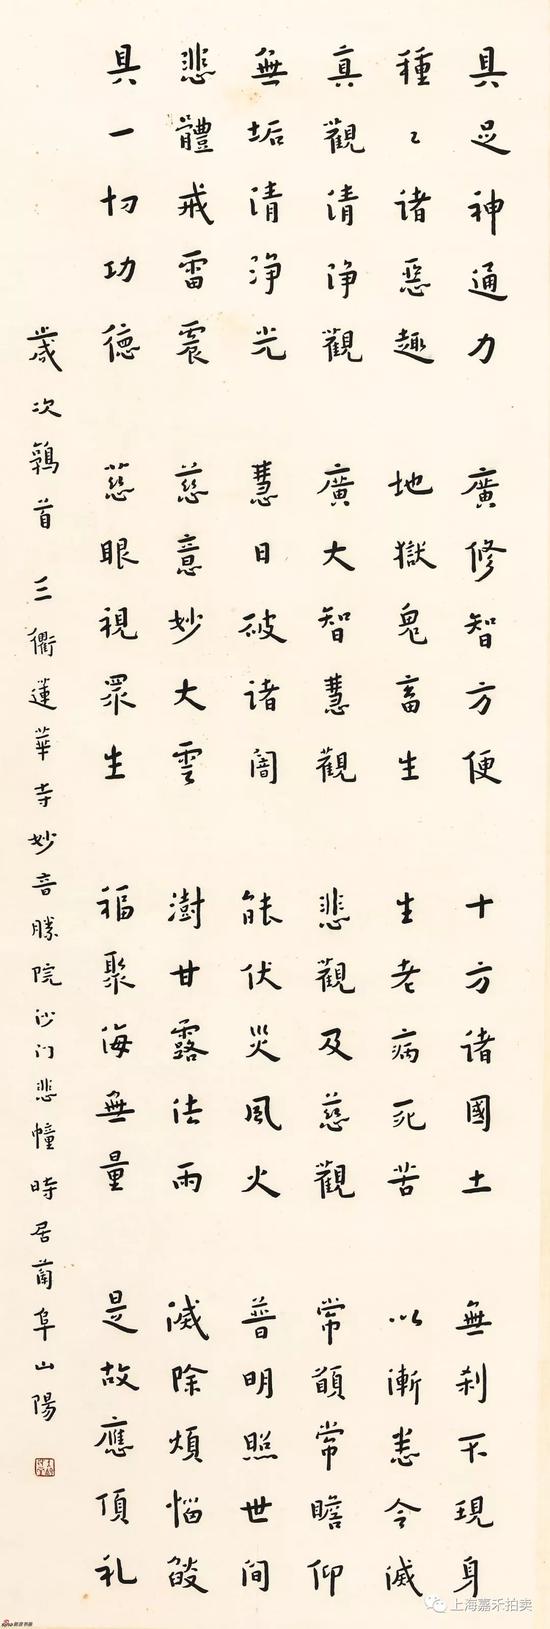 具足神通力 廣修智方便 十方諸國土 無刹不現身
種〻諸惡趣 地獄鬼畜生 生老病死苦 以漸悉令滅
真觀清淨觀 廣大智慧觀 悲觀及慈觀 常願常瞻仰
無垢清淨光 慧日破諸闇 能伏災風火 普明照世間
悲體戒雷震 慈意妙大雲 澍甘露法雨 滅除煩惱燄
具一切功德 慈眼視眾生 福聚海無量 是故應頂礼
歲次鶉首 三衢蓮華寺妙音勝院沙门悲幢時居蘭阜山陽
上海嘉禾拍卖
sina 新浪书画